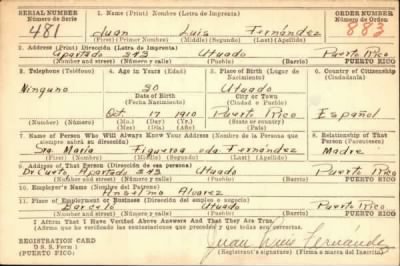 SERIAL NUMBER 1. Name (Print) Nombre (Letra de Imprenta) ORDER NUMBER
Número de Serie Número de Orden
481 Juan Luis Fernández 883
(First)(Primero) (Middle)(Segundo) (Last)(Apellido)
2. Address (Print) Dirección (Letra de Imprenta)
Apartado 243 Utuado Puerto Rico
(Number and street) (Número y calle) (Pueblo) (Barrio) PUERTO RICO
3. Telephone (Teléfono) 4. Age in Years (Edad) 5. Place of Birth (Lugar de Nacimiento) 6. Country of Citizenship (Ciudadanía)
Ninguno 30 Utuado
Date of Birth City or Town
(Fecha Nacimiento) (Ciudad o Pueblo)
Oct. 17 1910 Puerto Rico Español
(Number) (Número) (Mo.) (Day) (Yr.) (State or country)
7. Name of Person Who Will Always Know Your Address (Nombre de la Persona que siempre sabrá su dirección) 8. Relationship of That Person (Parentesco)
Sra. María Figueroa vda Fernández Madre
(Middle) (Segundo) (Apellido)
9. Address of That Person (Dirección de esa persona)
Dr Cueto, Apartado 243 Utuado Puerto Rico
(Number and street) (Número y calle) (Pueblo) (Barrio) PUERTO RICO
10. Employer's Name (Nombre del Patrono)
Anselmo Alvarez
11. Place of Employment or Business (Dirección del empleo o negocio)
Barcelo Utuado Puerto Rico
(Number and street) (Número y calle) (Pueblo) (Barrio) PUERTO RICO
I Affirm That I Have Verified Above Answers And That They Are True
(Afirmo que he verificado las contestaciones que preceden y que todas son correctas)
REGISTRATION CARD
D. S. S. Form 1
(PUERTO RICO)
Juan Luis Fernández
(Registrant's signature) (Firma o marca del Inscrito)